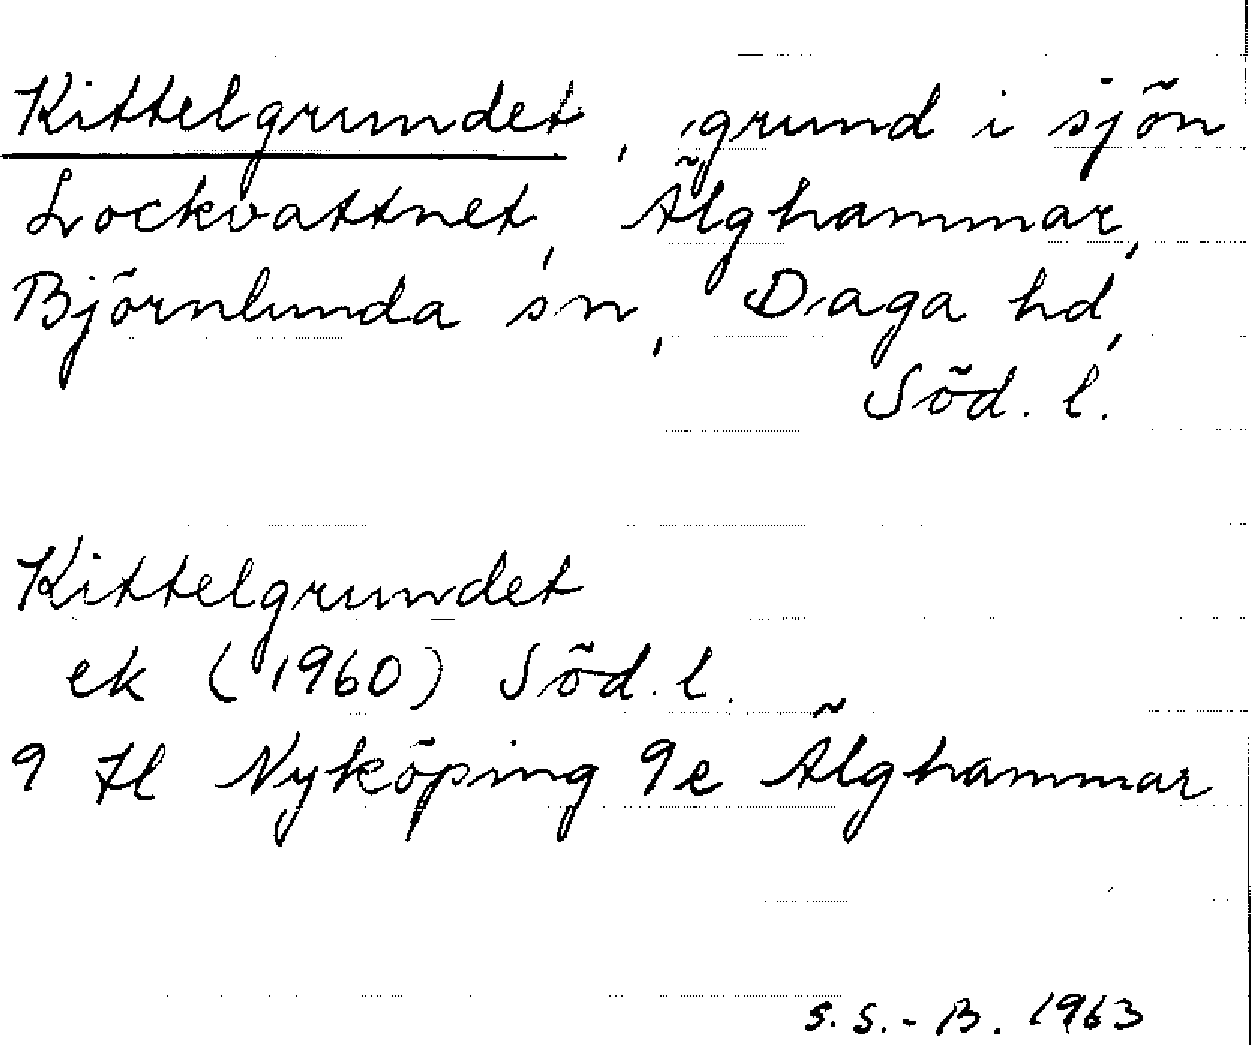 Kittelgrundet, grund i sjön
Lockvattnet, Älghammar,
Björnlunda sn, Daga hd,
Söd. l.
Kittelgrundet
ek (1960) Söd. l.
9 Hl Nyköping 9e Älghammar
S.S.-B. 1963